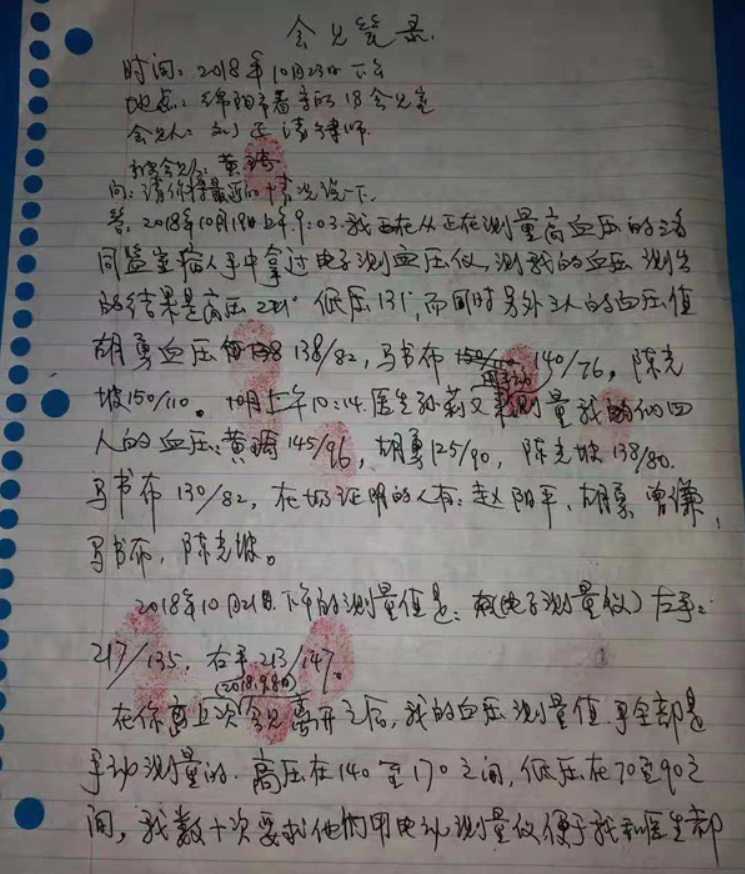 会见笔录.
时间：2018年10月23日下午
地点：绵阳市看守所18会见室
会见人：刘正清律师.
被会见人：黄琦
问：请你将最近的情况说一下.
答：2018年10月19日上午9:03.我正在从正在测量高血压的
同监室病人手中拿过电子测血压仪,测我的血压 测出
的结果是高压221 低压131,而同时另外三人的血压值
胡勇血压 138/82,马书布 140/76,陈克
坡150/110。 同日上午10:14.医生孙莉又用手动测量我们四
人的血压:黄琦145/96,胡勇125/90,陈克坡138/80.
马书布130/82,在场证明的人有:赵阳平、胡勇 曾谦,
马书布,陈克坡。
2018年10月21日.下午的测量值是:(电子测量仪)左手:
217/135,右手213/147。
(2018.9.8日)
在你上次会见离开之后,我的血压测量值 全部是
手动测量的.高压在140至170之间,低压在70至90之
间,我数十次要求他们用电动测量仪便于我和医生都